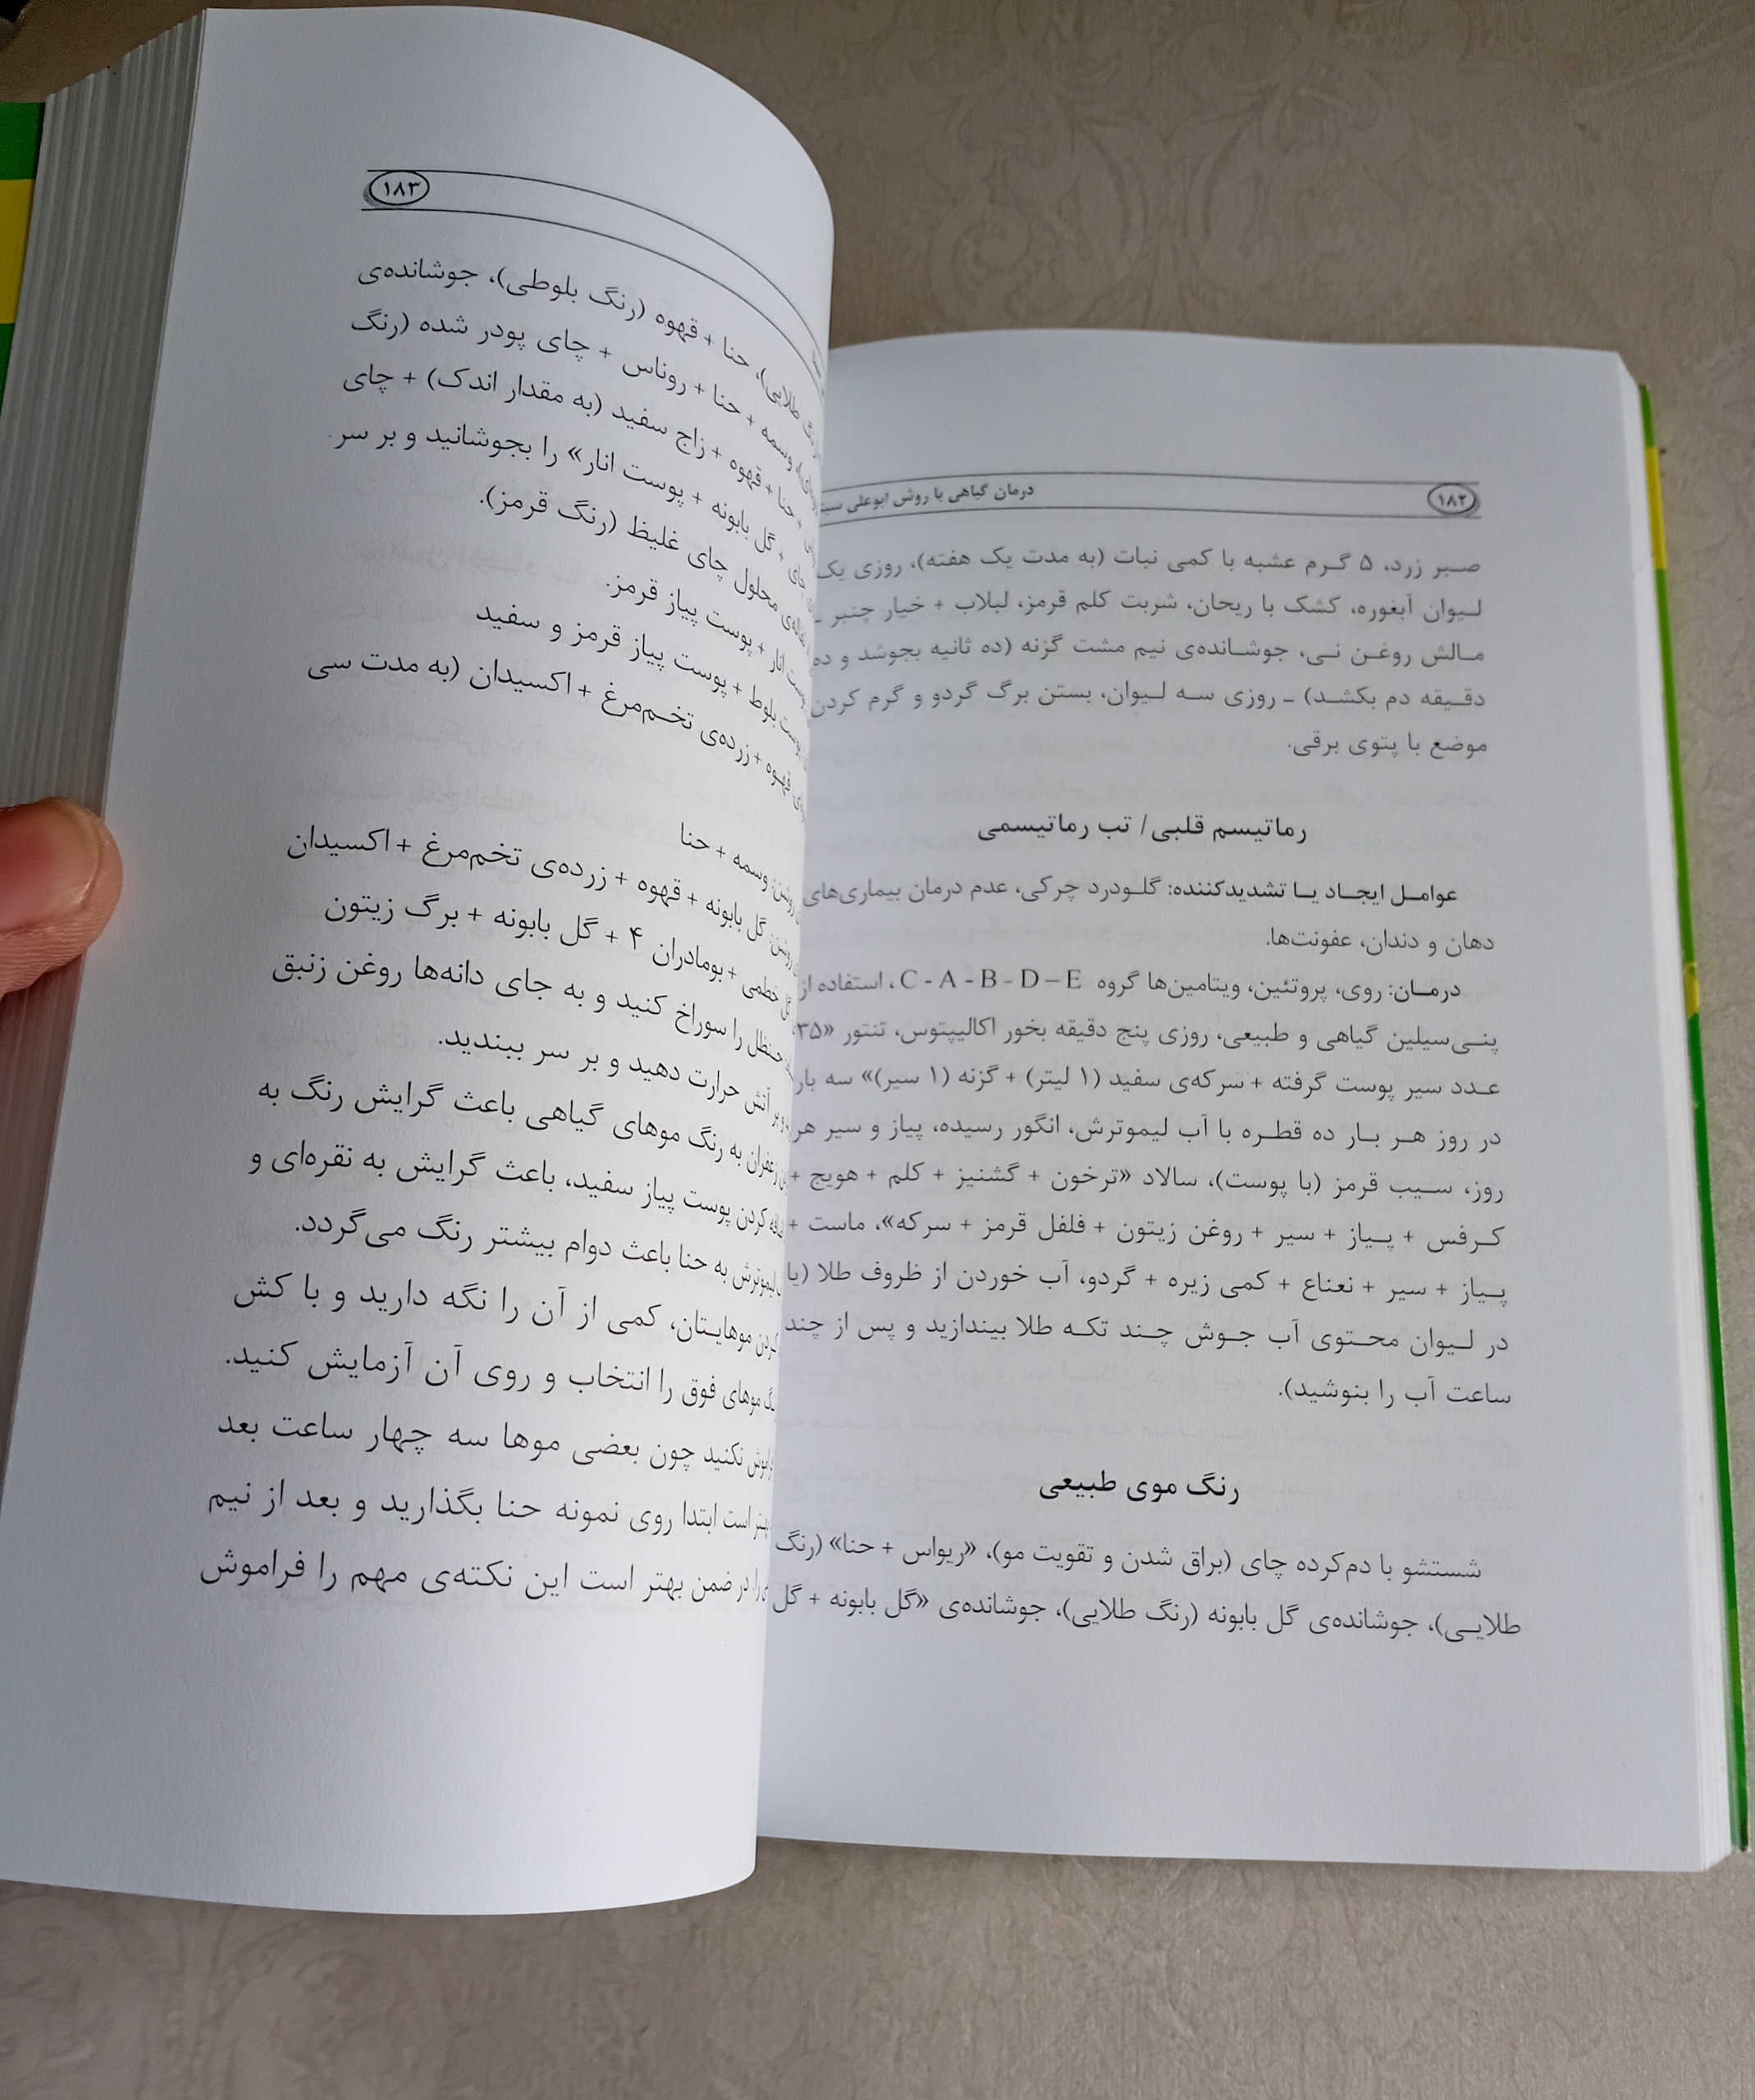 ۱۸۲
درمان گیاهی با روش ابوعلی سینا
صبر زرد، ۵ گرم عشبه با کمی نبات (به مدت یک هفته)، روزی یک
لیوان آبغوره، کشک با ریحان، شربت کلم قرمز، لبلاب + خیار چنبر ـ
مالش روغن نی، جوشانده‌ی نیم مشت گزنه (ده ثانیه بجوشد و ده
دقیقه دم بکشد) ـ روزی سه لیوان، بستن برگ گردو و گرم کردن
موضع با پتوی برقی.
رماتیسم قلبی/ تب رماتیسمی
عوامل ایجاد یا تشدیدکننده: گلودرد چرکی، عدم درمان بیماری‌های
دهان و دندان، عفونت‌ها.
درمان: روی، پروتئین، ویتامین‌ها گروه C - A - B - D – E، استفاده از
پنی‌سیلین گیاهی و طبیعی، روزی پنج دقیقه بخور اکالیپتوس، تنتور «۳۵
عدد سیر پوست گرفته + سرکه‌ی سفید (۱ لیتر) + گزنه (۱ سیر)» سه بار
در روز هر بار ده قطره با آب لیموترش، انگور رسیده، پیاز و سیر هر
روز، سیب قرمز (با پوست)، سالاد «ترخون + گشنیز + کلم + هویج +
کرفس + پیاز + سیر + روغن زیتون + فلفل قرمز + سرکه»، ماست +
پیاز + سیر + نعناع + کمی زیره + گردو، آب خوردن از ظروف طلا (یا
در لیوان محتوی آب جوش چند تکه طلا بیندازید و پس از چند
ساعت آب را بنوشید).
رنگ موی طبیعی
شستشو با دم‌کرده چای (براق شدن و تقویت مو)، «ریواس + حنا» (رنگ
طلایی)، جوشانده‌ی گل بابونه (رنگ طلایی)، جوشانده‌ی «گل بابونه + گل
۱۸۳
طلایی)، حنا + قهوه (رنگ بلوطی)، جوشانده‌ی
وسمه + حنا + روناس + چای پودر شده (رنگ
+ حنا + قهوه + زاج سفید (به مقدار اندک) + چای
+ گل بابونه + پوست انار» را بجوشانید و بر سر
محلول چای غلیظ (رنگ قرمز).
انار + پوست پیاز قرمز.
پوست بلوط + پوست پیاز قرمز و سفید
قهوه + زرده‌ی تخم‌مرغ + اکسیدان (به مدت سی
روشن: وسمه + حنا
روشن: گل بابونه + قهوه + زرده‌ی تخم‌مرغ + اکسیدان
گل خطمی + بومادران ۴ + گل بابونه + برگ زیتون
حنظل را سوراخ کنید و به جای دانه‌ها روغن زنبق
بر آتش حرارت دهید و بر سر ببندید.
زعفران به رنگ موهای گیاهی باعث گرایش رنگ به
کردن پوست پیاز سفید، باعث گرایش به نقره‌ای و
لیموترش به حنا باعث دوام بیشتر رنگ می‌گردد.
کردن موهایتان، کمی از آن را نگه دارید و با کش
موهای فوق را انتخاب و روی آن آزمایش کنید.
نکنید چون بعضی موها سه چهار ساعت بعد
بهتر است ابتدا روی نمونه حنا بگذارید و بعد از نیم
را. در ضمن بهتر است این نکته‌ی مهم را فراموش